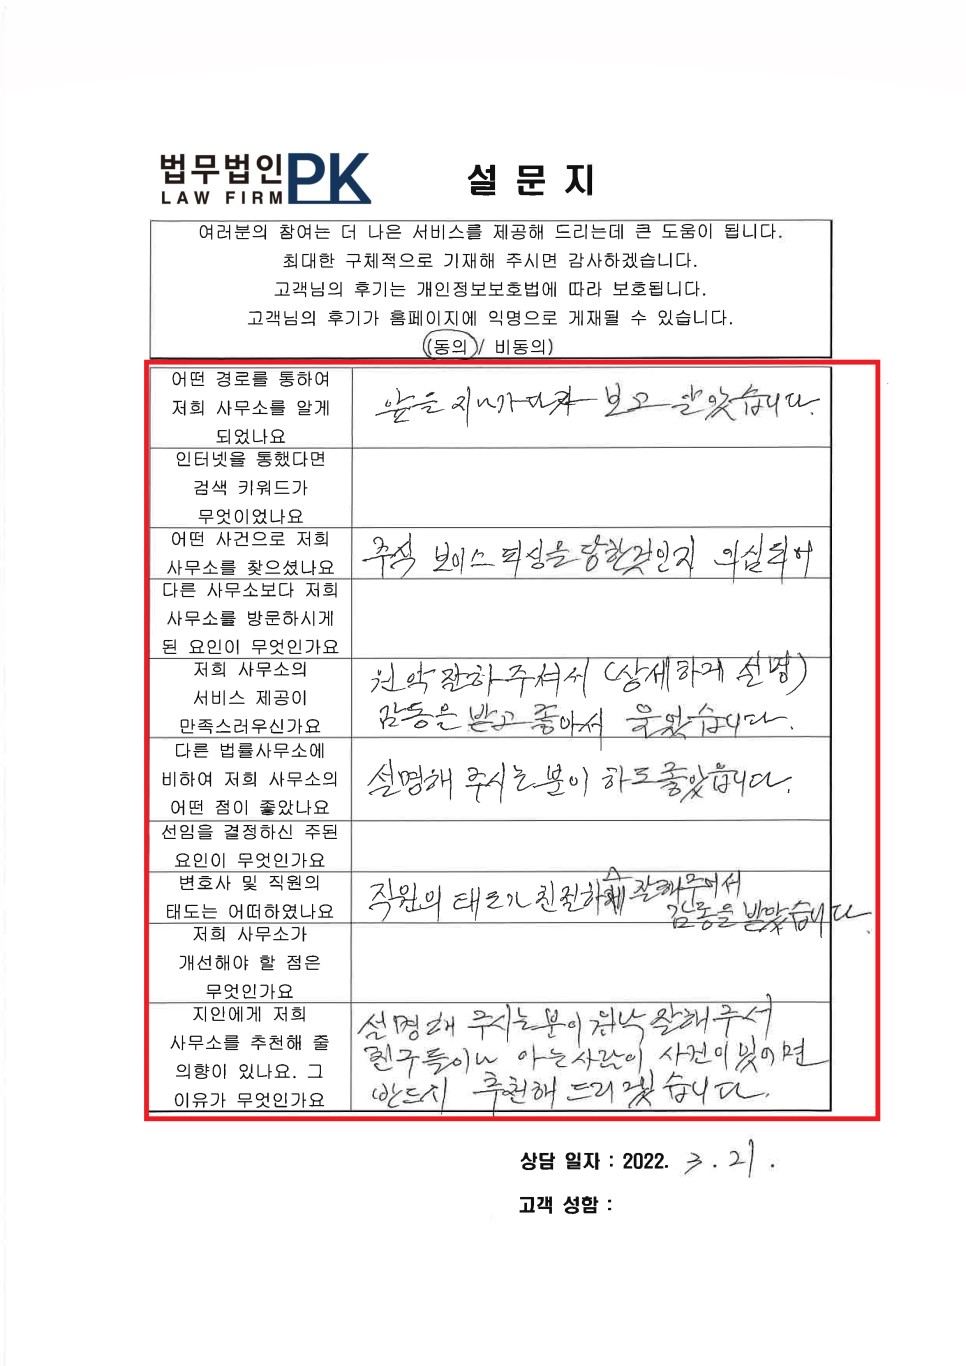 법무법인 PK
LAW FIRM
설 문 지
여러분의 참여는 더 나은 서비스를 제공해 드리는데 큰 도움이 됩니다.
최대한 구체적으로 기재해 주시면 감사하겠습니다.
고객님의 후기는 개인정보보호법에 따라 보호됩니다.
고객님의 후기가 홈페이지에 익명으로 게재될 수 있습니다.
(동의 / 비동의)
어떤 경로를 통하여
저희 사무소를 알게
되었나요
앞을 지나가다가 보고 알았습니다.
인터넷을 통했다면
검색 키워드가
무엇이었나요
어떤 사건으로 저희
사무소를 찾으셨나요
주식 보이스 피싱을 당한것인지 의심되어
다른 사무소보다 저희
사무소를 방문하시게
된 요인이 무엇인가요
저희 사무소의
서비스 제공이
만족스러우신가요
원악 잘하주셔서 (상세하게 설명)
감동을 받고 좋아서 웃었습니다.
다른 법률사무소에
비하여 저희 사무소의
어떤 점이 좋았나요
설명해 주시는 분이 하도 좋았읍니다.
선임을 결정하신 주된
요인이 무엇인가요
변호사 및 직원의
태도는 어떠하였나요
직원의 태도가 친절하게 잘해주어서
감동을 받았습니다.
저희 사무소가
개선해야 할 점은
무엇인가요
지인에게 저희
사무소를 추천해 줄
의향이 있나요. 그
이유가 무엇인가요
설명해 주시는분이 워낙 잘해주서
친구들이나 아는사람이 사건이 있이면
반드시 추천해 드리겠습니다.
상담 일자 : 2022. 3. 21.
고객 성함 :